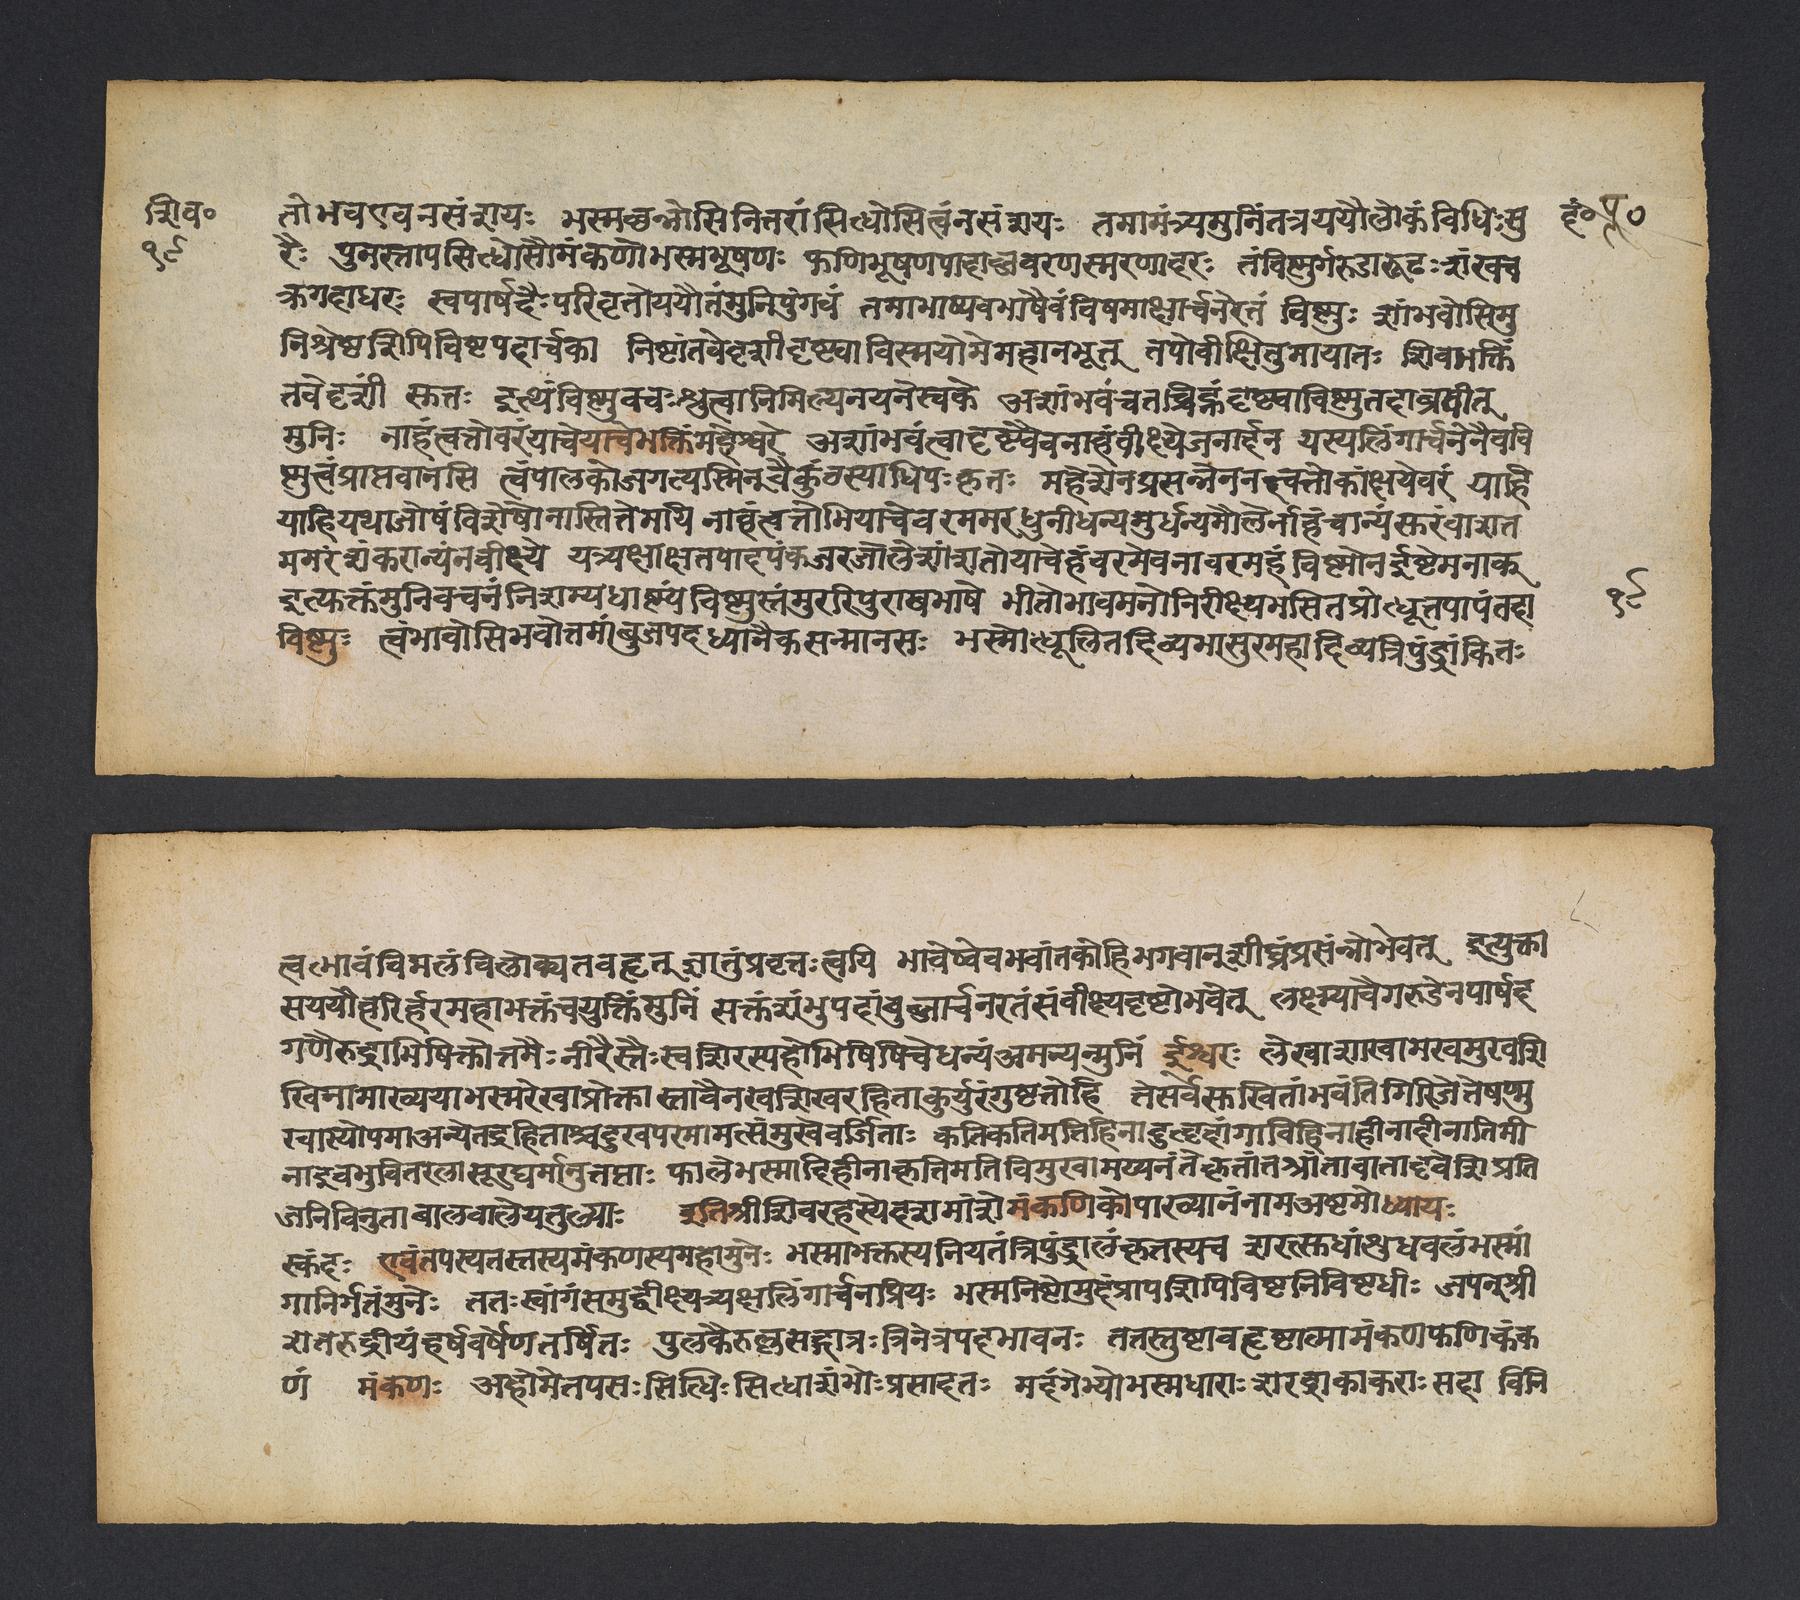 शिव॰
१९
तो भव एव न संशयः भस्मच्छन्नोसि नितरां सिध्धोसि त्वं न संशयः तमामंत्र्य मुनिं तत्र ययौ लोकं विधिः सु
दं॰
रैः पुनस्तापसिध्धोसौ मंकणो भस्मभूषणः फणिभूषणपादाब्जवरणस्मरणादरः तं विष्णुर्गरुडारूढः शंखच
क्रगदाधरः स्वपार्षदैः परिवृतो ययौ तं मुनिपुंगवं तमाभाष्य बभाषैवं विषमाक्षार्चनेरतं विष्णुः शांभवोसि मु
निश्रेष्ठ शिपिविष्टपदार्चका निष्टां तवेदृशी दृष्ट्वा विस्मयो मे महानभूत् तपो वीक्षितुमायातः शिवभक्तिं
तवेदृशीं स्कतः इत्थं विष्णुवचः श्रुत्वा निमिल्य नयने स्वके अशांभवं च तच्चिह्नं दृष्ट्वा विष्णुतदाब्रवीत्
मुनिः नाहं त्वत्तो वरं याचे याचे भक्तिं महेश्वरे अशांभवं त्वा दृष्ट्वैव नाहं वीक्ष्ये जनार्दन यस्य लिंगार्चनेनैव वि
ष्णुत्वं प्राप्तवानसि त्वं पालको जगत्यस्मिन् वैकुंठस्याधिपः कृतः महेशेन प्रसन्नेन न त्वत्तो कांक्षये वरं याहि
याहि यथाजोषं विशेषो नास्ति ते मयि नाहं त्वत्तोभियाचे वरममरधुनीधन्यमुर्धन्यमौलेर्नाहं चान्यं स्करं वा शत
ममरं शंकरान्यं न वीक्ष्ये यत्र्यक्षाक्षतपादपंकजरजोलेशांशतो याचेहं वरमेव नावरमहं विष्णो न दुष्टेमनाक्
इत्युक्तं मुनिवचनं निशम्य धार्ष्ट्यं विष्णुस्तं मुररिपुराबभाषे भीतो भावमनो निरीक्ष्य भसितप्रोध्धूतपापं तदा
१९
विष्णुः त्वं भावोसि भवोत्तमांबुजपदध्यानैकसन्मानसः भस्मोध्धूलितदिव्यभासुरमहादिव्यत्रिपुंड्रांकितः
त्वभावं विमलं विलोक्य तव हृत् ज्ञातुं प्रवृत्तः त्वयि भावेष्वेव भवांतको हि भगवान् शीघ्रं प्रसंन्नो भवेत् इत्युक्त्वा
स ययौ हरिर्हरमहाभक्तं च युक्तिं मुनिं सक्तं शंभुपदांबुजार्चनरतं संवीक्ष्य दृष्टो भवेत् लक्ष्म्या वै गरुडेन पार्षद
गणै रुद्राभिषिक्तोत्तमैः नीरैस्तैः स्वशिरस्यहोभिषिषिचे धन्यं अमन्यन्मुनिं ईश्वरः लेखाशाखामखमुखशि
खिमामाख्यया भस्मरेखा प्रोक्तास्तावै नखशिखरहिता कुर्युरंगुष्टतो हि ते सर्वे स्कखितां भवंति गिरिजे तेषण्मु
खास्योपमा अन्ये तद्रहिताश्च दुःखपरमामत्संमुखे वर्जिताः कतिकतिमतिहिनाद्रुत्दृदांगाविहिनाहीनाहीनातिमी
नाइव भुवि तरलासूरुघर्मानुतप्ताः फाले भस्मादिहीनाकृतिमतिविमुखामय्यनंते कृतांत श्रांतावातादृवेशि प्रति
जनिविनुताबालवालेयतुल्याः इति श्रीशिवरहस्ये दशमांशे मंकणिकोपाख्यानं नाम अष्टमोध्यायः
स्कंदः एवं तपस्यतस्तस्य मंकणस्य महामुनेः भस्माभक्तस्य नियतं त्रिपुंड्रालंकृतस्य च शस्त्रस्कधांशुधवलं भस्मां
गानिर्गतं मुनेः ततः खांगं समुद्वीक्ष्य त्र्यक्षलिंगार्चनप्रियः भस्मनिष्टो मुदं प्राप शिपिविष्टनिविष्टधीः जपन् श्री
शतरुद्रीयं हर्षवर्षेण तर्षितः पुलकैरुल्लसद्गात्रः त्रिनेत्रपदभावनः ततस्तुष्टाव हृष्टात्मा मंकणफणिकंक
णं मंकणः अहो मे तपसः सिध्धिः सिध्धा शंभोः प्रसादतः मदंगेभ्यो भस्मधाराः शरच्चाकाकराः सदा विनि